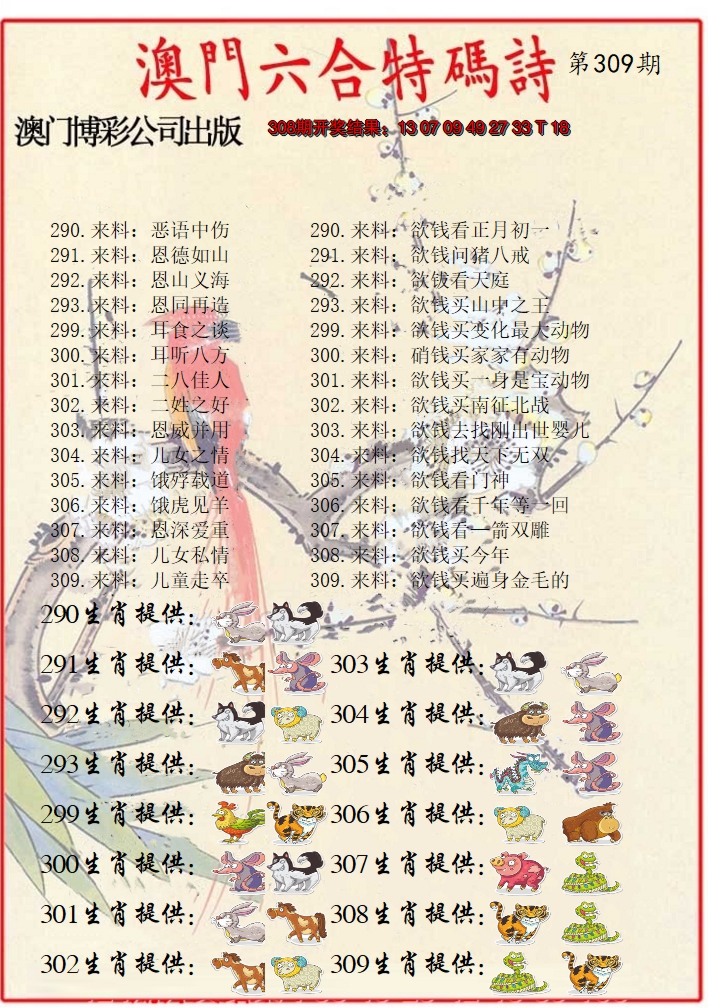 澳門六合特碼詩 第309期
澳门博彩公司出版 308期开奖结果：13 07 09 49 27 33 T 18
290.来料：恶语中伤 290.来料：欲钱看正月初一
291.来料：恩德如山 291.来料：欲钱问猪八戒
292.来料：恩山义海 292.来料：欲钱看天庭
293.来料：恩同再造 293.来料：欲钱买山中之王
299.来料：耳食之谈 299.来料：欲钱买变化最大动物
300.来料：耳听八方 300.来料：硝钱买家家有动物
301.来料：二八佳人 301.来料：欲钱买一身是宝动物
302.来料：二姓之好 302.来料：欲钱买南征北战
303.来料：恩威并用 303.来料：欲钱去找刚出世婴儿
304.来料：儿女之情 304.来料：欲钱找天下无双
305.来料：饿殍载道 305.来料：欲钱看门神
306.来料：饿虎见羊 306.来料：欲钱看千年等一回
307.来料：恩深爱重 307.来料：欲钱看一箭双雕
308.来料：儿女私情 308.来料：欲钱买今年
309.来料：儿童走卒 309.来料：欲钱买遍身金毛的
290生肖提供：
291生肖提供： 303生肖提供：
292生肖提供： 304生肖提供：
293生肖提供： 305生肖提供：
299生肖提供： 306生肖提供：
300生肖提供： 307生肖提供：
301生肖提供： 308生肖提供：
302生肖提供： 309生肖提供：